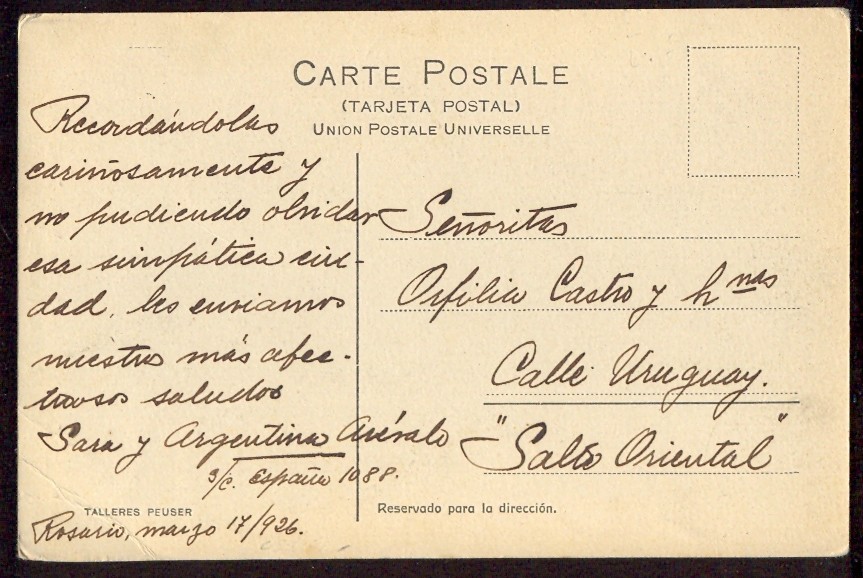 CARTE POSTALE
(TARJETA POSTAL)
UNION POSTALE UNIVERSELLE
Recordándolas
cariñosamente y
no pudiendo olvidar
esa simpática ciu-
dad, les enviamos
nuestros más afec-
tuosos saludos
Sara y Argentina Arévalo
s/c. España 1088.
TALLERES PEUSER
Rosario, marzo 17/926.
Señoritas
Orfilia Castro y hnas
Calle Uruguay.
"Salto Oriental"
Reservado para la dirección.